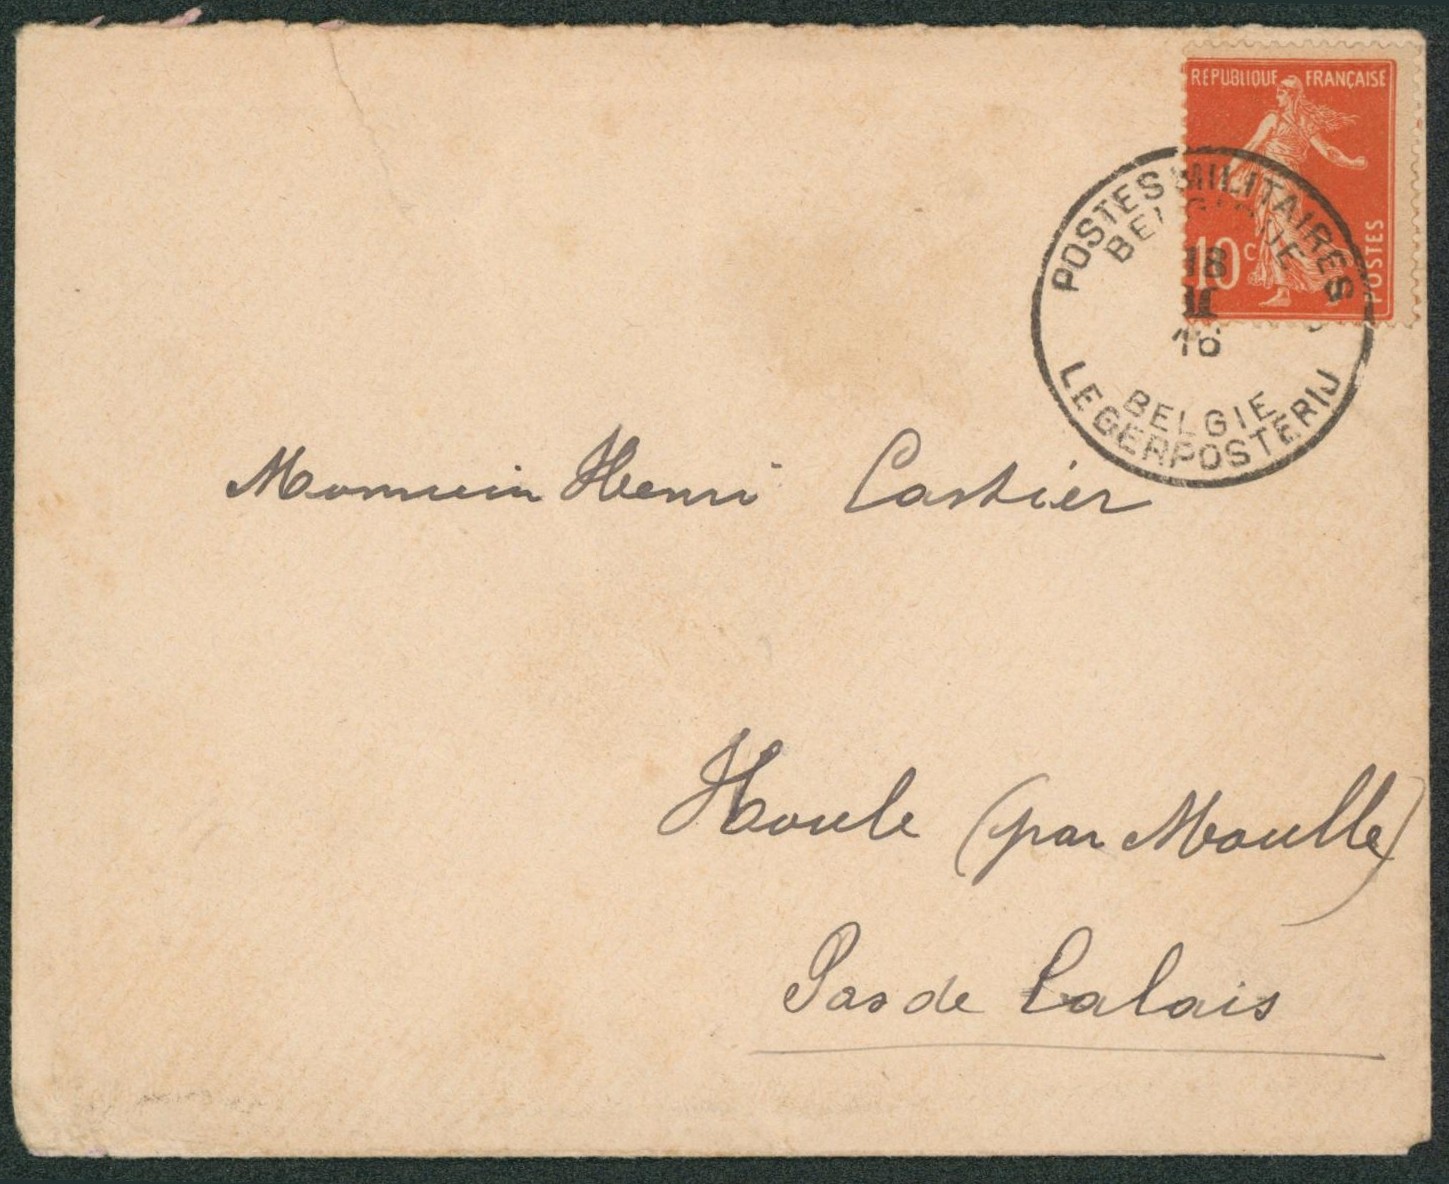 REPUBLIQUE FRANÇAISE
10c
POSTES
POSTES MILITAIRES
BELGIQUE
18
II
16
BELGIE
LEGERPOSTERIJ
Monsieur Henri Castier
Houle (par Moulle)
Pas de Calais